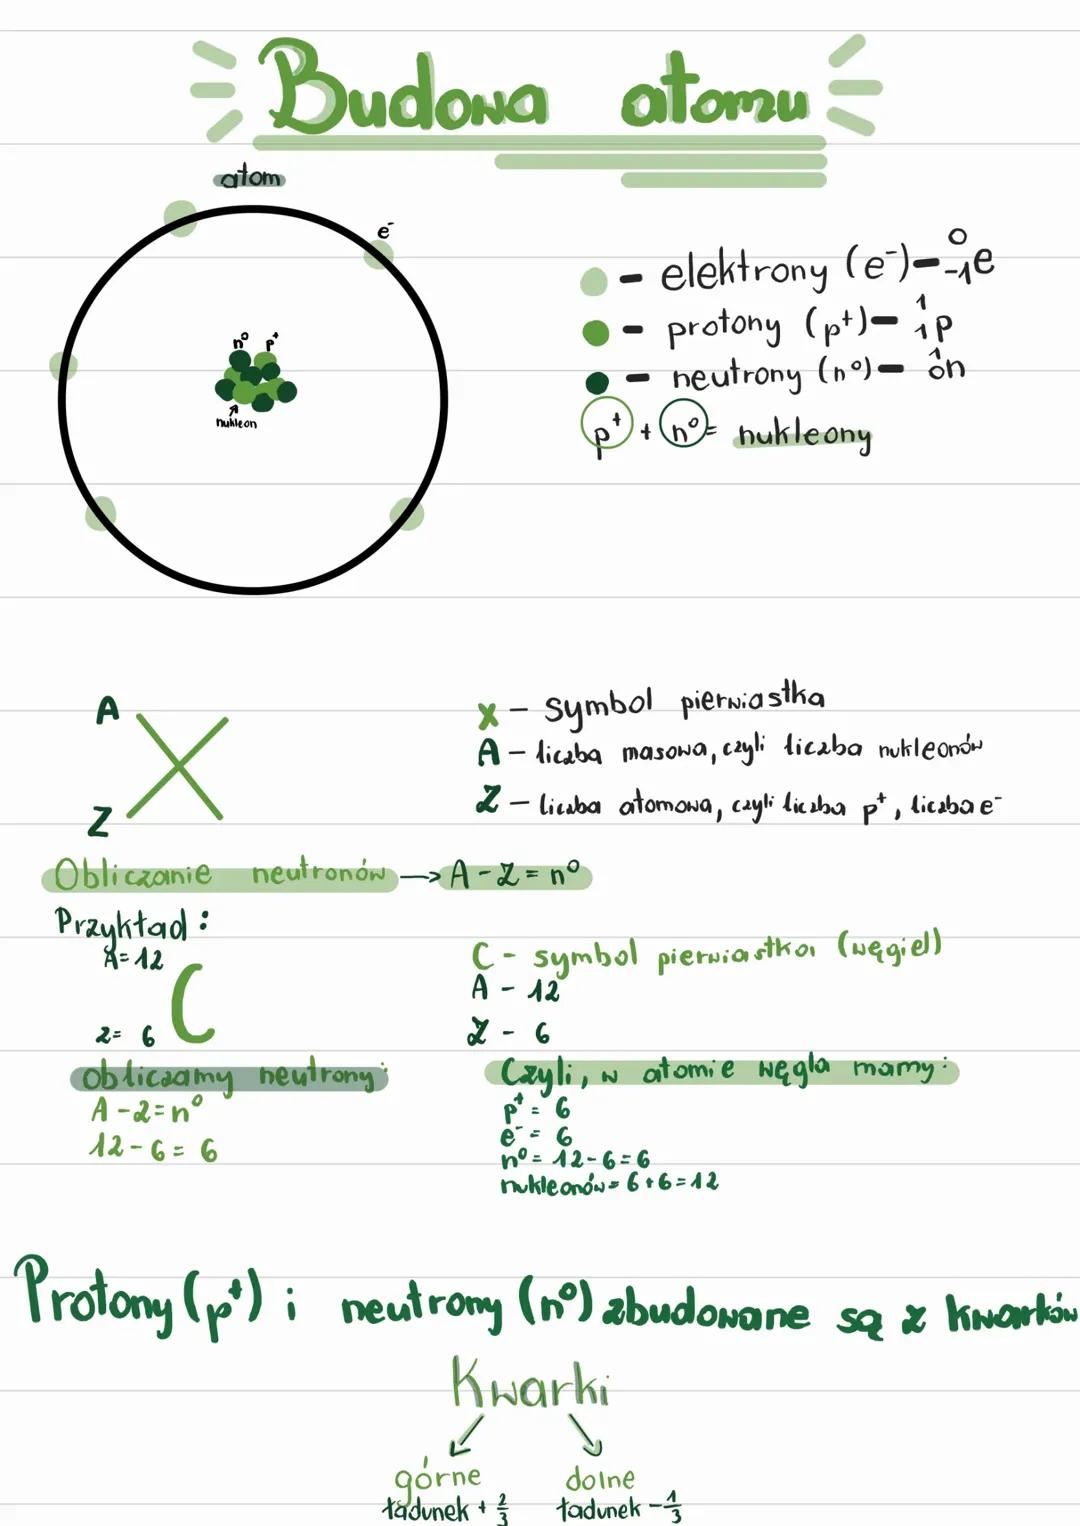 Budowa atomu
atom
e⁻
n⁰ p⁺
nukleon
- elektrony (e⁻) - ⁰₋₁e
- protony (p⁺) - ¹₁p
- neutrony (n⁰) - ¹₀n
p⁺ + n⁰ = nukleony
A
X
Z
x - symbol pierwiastka
A - liczba masowa, czyli liczba nukleonów
Z - liczba atomowa, czyli liczba p⁺, liczba e⁻
Obliczanie neutronów → A - Z = n⁰
Przykład:
A = 12
C
Z = 6
C - symbol pierwiastka (węgiel)
A - 12
Z - 6
obliczamy neutrony:
A - Z = n⁰
12 - 6 = 6
Czyli, w atomie węgla mamy:
p⁺ = 6
e⁻ = 6
n⁰ = 12 - 6 = 6
nukleonów = 6 + 6 = 12
Protony (p⁺) i neutrony (n⁰) zbudowane są z kwarków
Kwarki
górne dolne
ładunek + 2/3 ładunek - 1/3